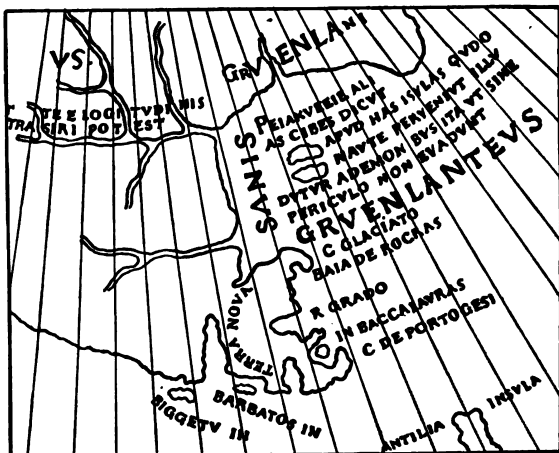 VS.
GRVENLANT
T TE ELOGI TVDI NIS
TRA SIRI POT EST
ALI
AS CIBES DICVT
APVD HAS ISVLAS QVDO
NAVTE PERVENIVT ILLV
DVTVR ADEMON BVS ITA VT SINE
PERICVLO NON EVADVNT
SINVS
GRVENLANTEVS
C GLACIATO
BAIA DE ROCRAS
R GRADO
IN BACCALAVRAS
C DE PORTOGESI
TERRA NOVA
BARBATOS IN
BIGGETV IN
ANTILIA INSVLA